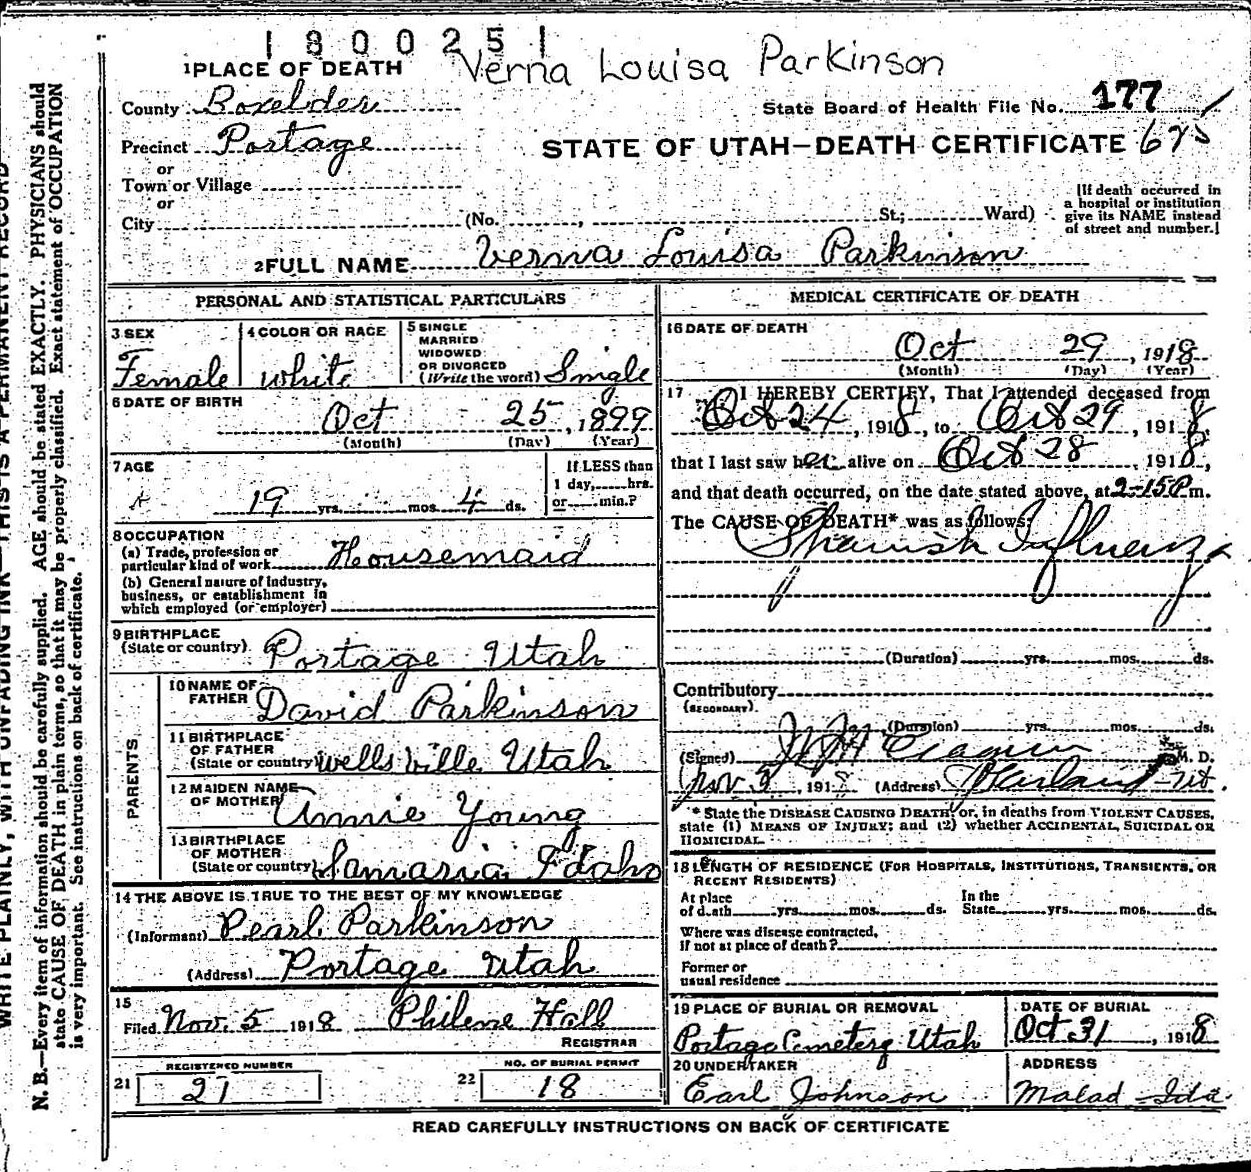 1800251
Verna Louisa Parkinson
1 PLACE OF DEATH
County Boxelder
State Board of Health File No. 177
Precinct Portage
STATE OF UTAH—DEATH CERTIFICATE 675
or
Town or Village
or
City (No. , St; Ward)
[If death occurred in
a hospital or institution
give its NAME instead
of street and number.]
2 FULL NAME Verna Louisa Parkinson
PERSONAL AND STATISTICAL PARTICULARS
3 SEX
Female
4 COLOR OR RACE
White
5 SINGLE
MARRIED
WIDOWED
OR DIVORCED
(Write the word) Single
6 DATE OF BIRTH
Oct 25, 1899
(Month) (Day) (Year)
7 AGE
19 yrs. mos. 4 ds.
If LESS than
1 day, hrs.
or min.?
8 OCCUPATION
(a) Trade, profession or
particular kind of work Housemaid
(b) General nature of industry,
business, or establishment in
which employed (or employer)
9 BIRTHPLACE
(State or country) Portage Utah
PARENTS
10 NAME OF
FATHER David Parkinson
11 BIRTHPLACE
OF FATHER
(State or country) Wellsville Utah
12 MAIDEN NAME
OF MOTHER Annie Young
13 BIRTHPLACE
OF MOTHER
(State or country) Samaria Idaho
14 THE ABOVE IS TRUE TO THE BEST OF MY KNOWLEDGE
(Informant) Pearl Parkinson
(Address) Portage Utah
15
Filed Nov. 5 1918 Philene Hall
REGISTRAR
REGISTERED NUMBER
21 27
NO. OF BURIAL PERMIT
22 18
MEDICAL CERTIFICATE OF DEATH
16 DATE OF DEATH
Oct 29, 1918
(Month) (Day) (Year)
17 I HEREBY CERTIFY, That I attended deceased from
Oct 24, 1918, to Oct 29, 1918,
that I last saw her alive on Oct 28, 1918,
and that death occurred, on the date stated above, at 2-15 P.m.
The CAUSE OF DEATH* was as follows:
Spanish Influenza
(Duration) yrs. mos. ds.
Contributory
(SECONDARY)
(Duration) yrs. mos. ds.
(Signed) M. D.
Nov 3, 191 (Address) Garland Ut.
* State the DISEASE CAUSING DEATH; or, in deaths from VIOLENT CAUSES,
state (1) MEANS OF INJURY; and (2) whether ACCIDENTAL, SUICIDAL OR
HOMICIDAL.
18 LENGTH OF RESIDENCE (FOR HOSPITALS, INSTITUTIONS, TRANSIENTS, OR
RECENT RESIDENTS)
At place
of death yrs. mos. ds.
In the
State yrs. mos. ds.
Where was disease contracted,
if not at place of death?
Former or
usual residence
19 PLACE OF BURIAL OR REMOVAL
Portage Cemetery Utah
DATE OF BURIAL
Oct 31, 1918
20 UNDERTAKER
Earl Johnson
ADDRESS
Malad Ida.
READ CAREFULLY INSTRUCTIONS ON BACK OF CERTIFICATE
WRITE PLAINLY, WITH UNFADING INK—THIS IS A PERMANENT RECORD
N. B.—Every item of information should be carefully supplied. AGE should be stated EXACTLY. PHYSICIANS should
state CAUSE OF DEATH in plain terms, so that it may be properly classified. Exact statement of OCCUPATION
is very important. See instructions on back of certificate.